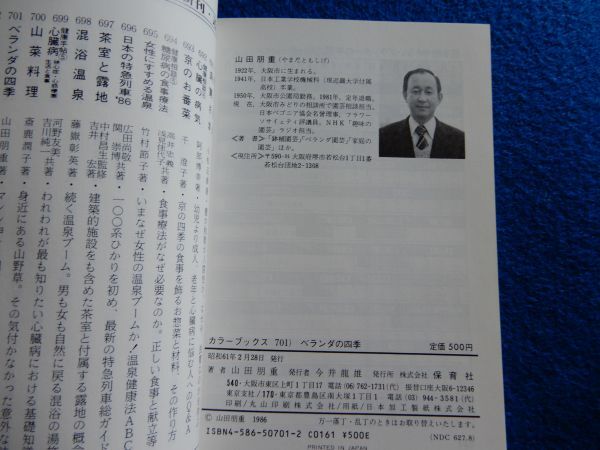 山田朋重（やまだともしげ）
1922年，大阪市に生まれる。
1941年，日本工業学校機械科（現近畿大学付属高校）卒業。
1950年，大阪市公園局勤務。1981年，定年退職。
現 在，大阪市みどりの相談所で園芸相談担当。
日本ベゴニア協会名管理事，フラワーソサイェティ評議員。NHK「趣味の園芸」ラジオ担当。
〈著 書〉「鉢植園芸」「ベランダ園芸」「家庭の園芸」ほか。
〈現住所〉〒590-01 大阪府堺市若松台1丁1番
若松台団地2-1308
カラーブックス 701) ベランダの四季
定価 500円
昭和61年2月28日 発行
著 者 山田朋重 発行者 今井龍雄 発行所 株式会社 保育社
540・大阪市東区上町1丁目17 電話(06)762-1731(代) 振替口座大阪6-12346
東京支社／170・東京都豊島区南大塚1丁目2 電話(03)944-3581(代)
印刷／丸山印刷株式会社／用紙／日本加工製紙株式会社
© 山田朋重 1986
万一落丁・乱丁のときはお取替えいたします。
ISBN4-586-50701-2 C0161 ¥500E
(NDC 627.8)
PRINTED IN JAPAN
694 健康相談③ 女性にすすめる温泉 竹村節子著
696 日本の特急列車'86 広田尚敬 関 崇博共著
697 茶室と露地 中村昌生監修 吉井 宏著
698 混浴温泉 藤嶽彰英著
699 健康手帖⑤ 心臓病 河野友美 吉川純一共著
700 山菜料理 斎鹿潤子著
701 ベランダの四季 山田朋重著
京のお番菜 千 澄子著 京の四季の食事を飾るお惣菜と材料、その作り方
糖尿病の食事療法 食事療法がなぜ必要なのか。正しい食事と献立等
いまなぜ女性の温泉ブームか！温泉健康法ABC
一〇〇系ひかりを初め、最新の特急列車総ガイド
建築的施設をも含めた茶室と付属する露地の概
続く温泉ブーム。男も女も自然に戻る混浴の湯
われわれが最も知りたい心臓病における基礎知識
身近にある山野草。その気付かなかった意外な